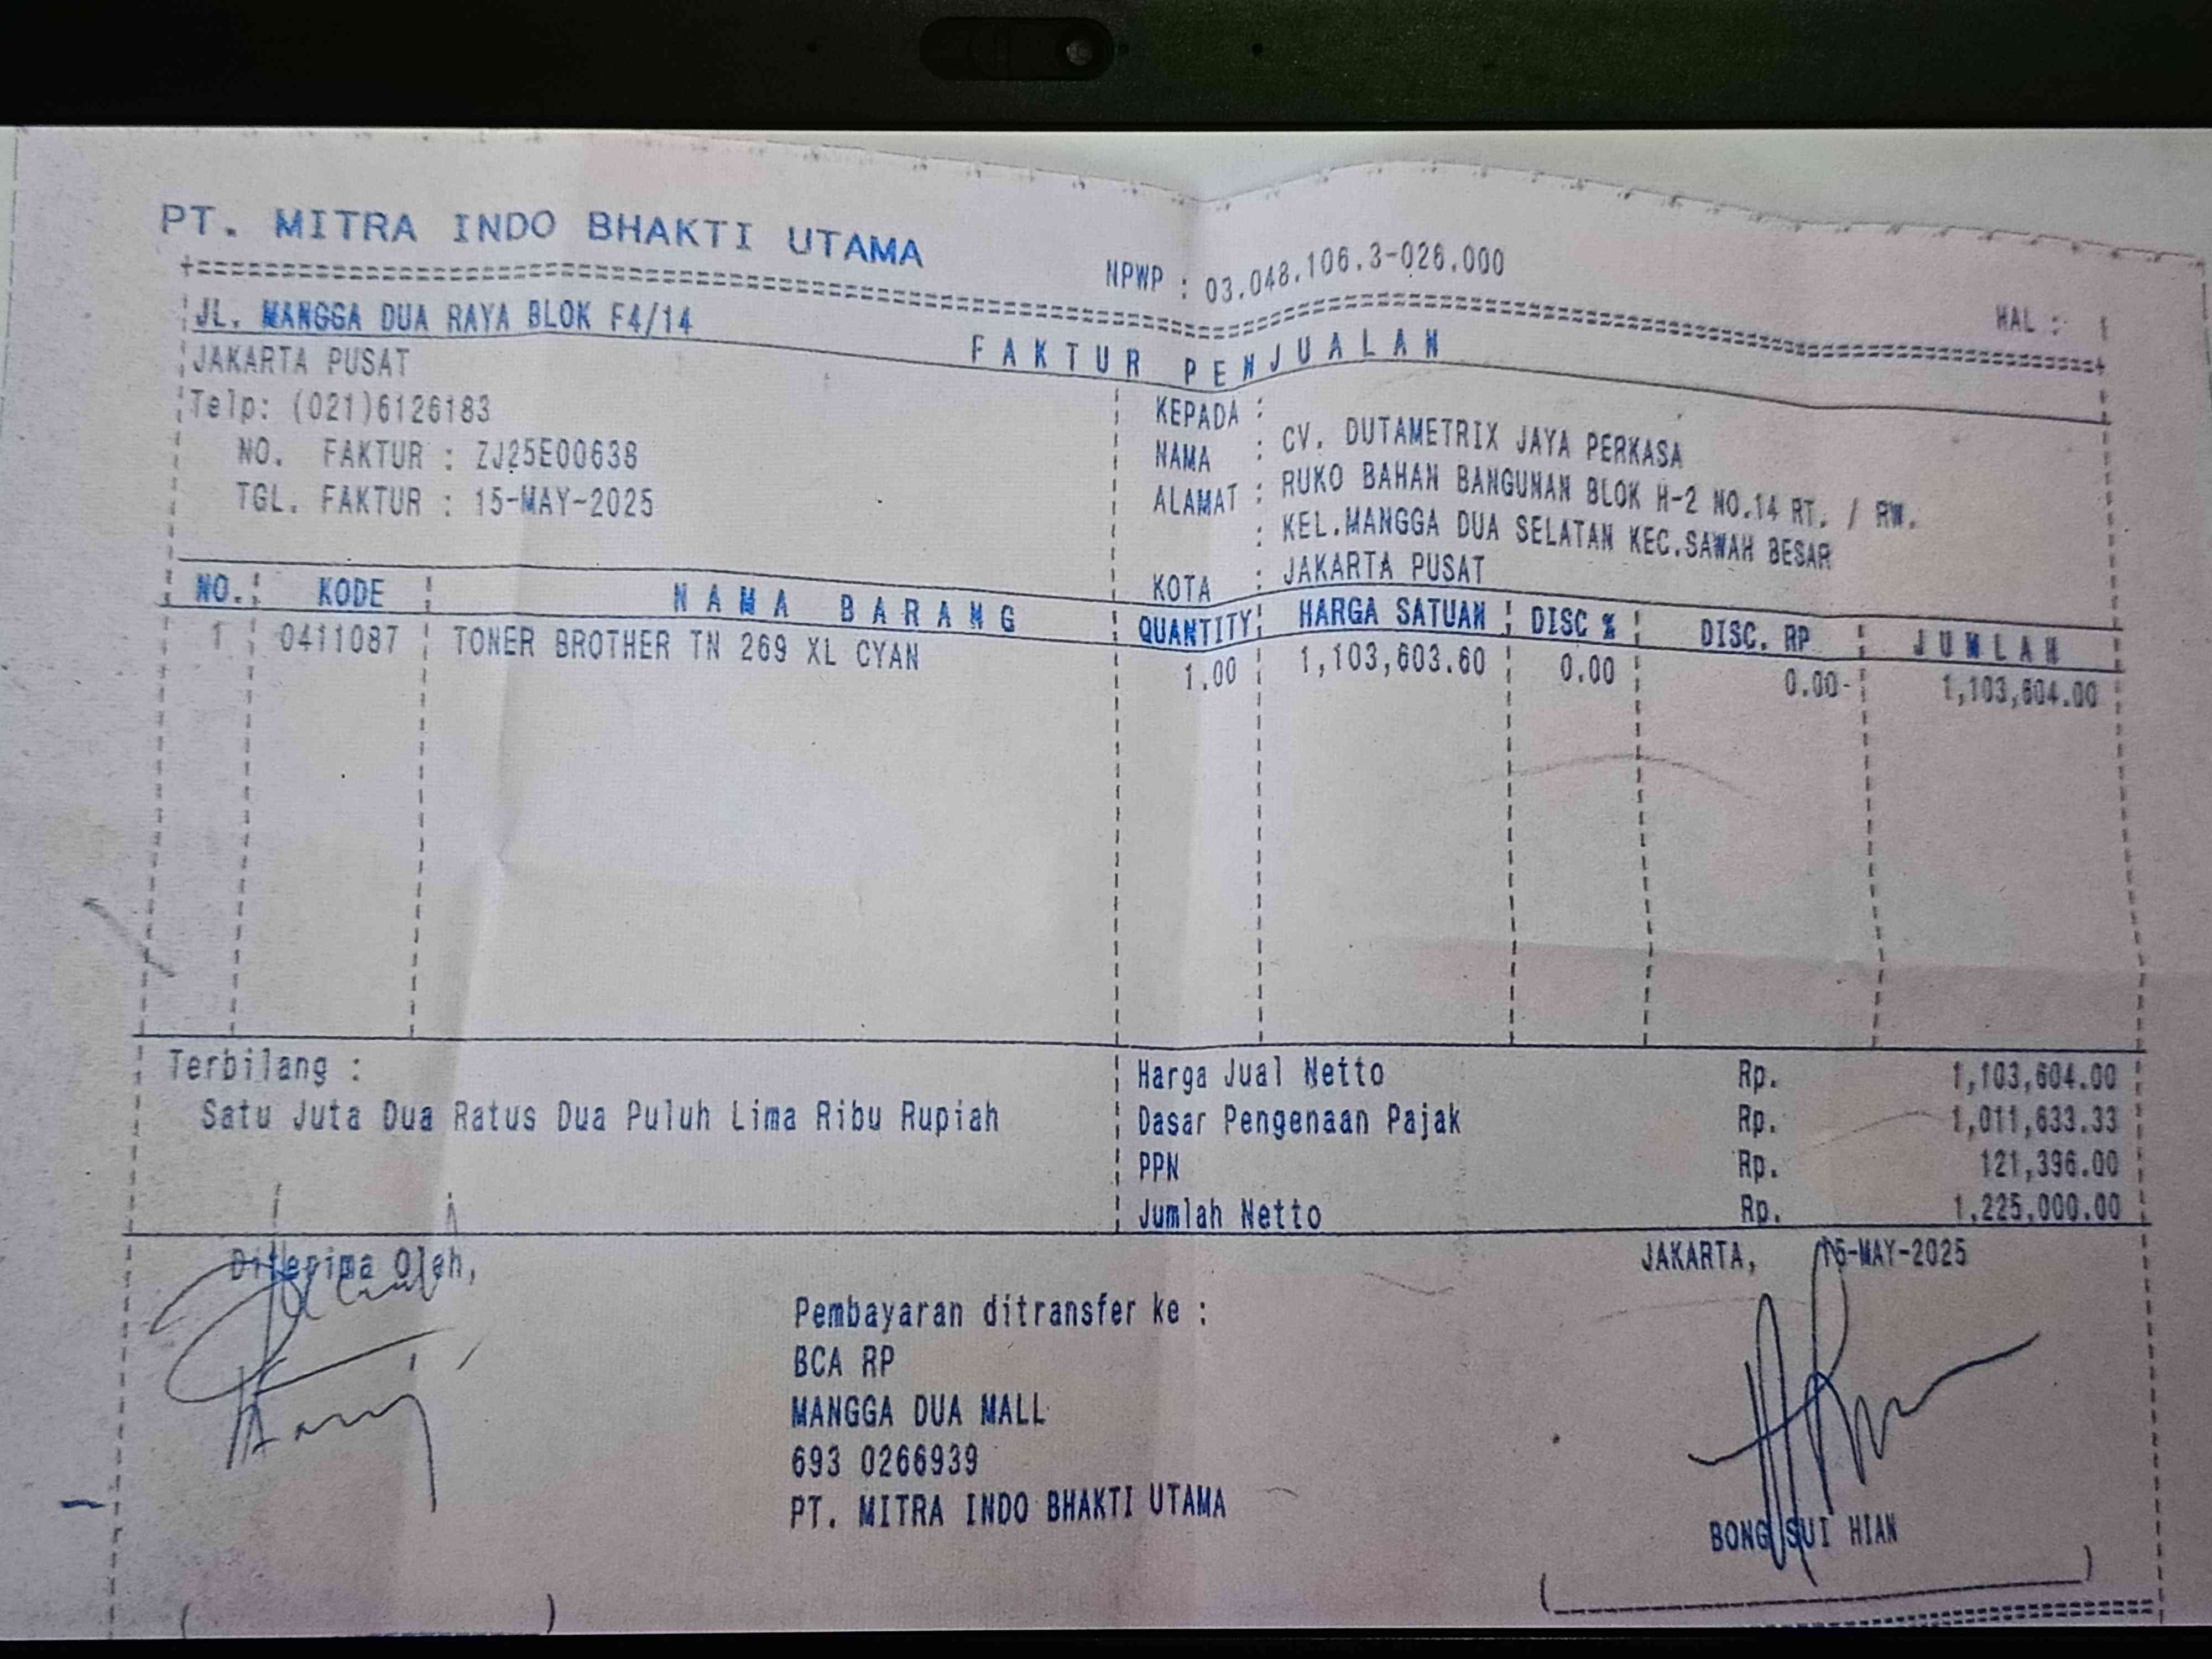 PT. MITRA INDO BHAKTI UTAMA
NPWP : 03.048.106.3-026.000
HAL :
JL. MANGGA DUA RAYA BLOK F4/14
FAKTUR PENJUALAN
JAKARTA PUSAT
Telp: (021)6126183
NO. FAKTUR : ZJ25E00638
TGL. FAKTUR : 15-MAY-2025
KEPADA :
NAMA : CV. DUTAMETRIX JAYA PERKASA
ALAMAT : RUKO BAHAN BANGUNAN BLOK H-2 NO.14 RT. / RW.
: KEL.MANGGA DUA SELATAN KEC.SAWAH BESAR
KOTA : JAKARTA PUSAT
NO. KODE NAMA BARANG QUANTITY HARGA SATUAN DISC % DISC. RP JUMLAH
1 0411087 TONER BROTHER TN 269 XL CYAN 1.00 1,103,603.60 0.00 0.00- 1,103,604.00
Terbilang :
Satu Juta Dua Ratus Dua Puluh Lima Ribu Rupiah
Harga Jual Netto Rp. 1,103,604.00
Dasar Pengenaan Pajak Rp. 1,011,633.33
PPN Rp. 121,396.00
Jumlah Netto Rp. 1,225,000.00
Diterima Oleh,
JAKARTA, 15-MAY-2025
Pembayaran ditransfer ke :
BCA RP
MANGGA DUA MALL
693 0266939
PT. MITRA INDO BHAKTI UTAMA
BONG SUI HIAN